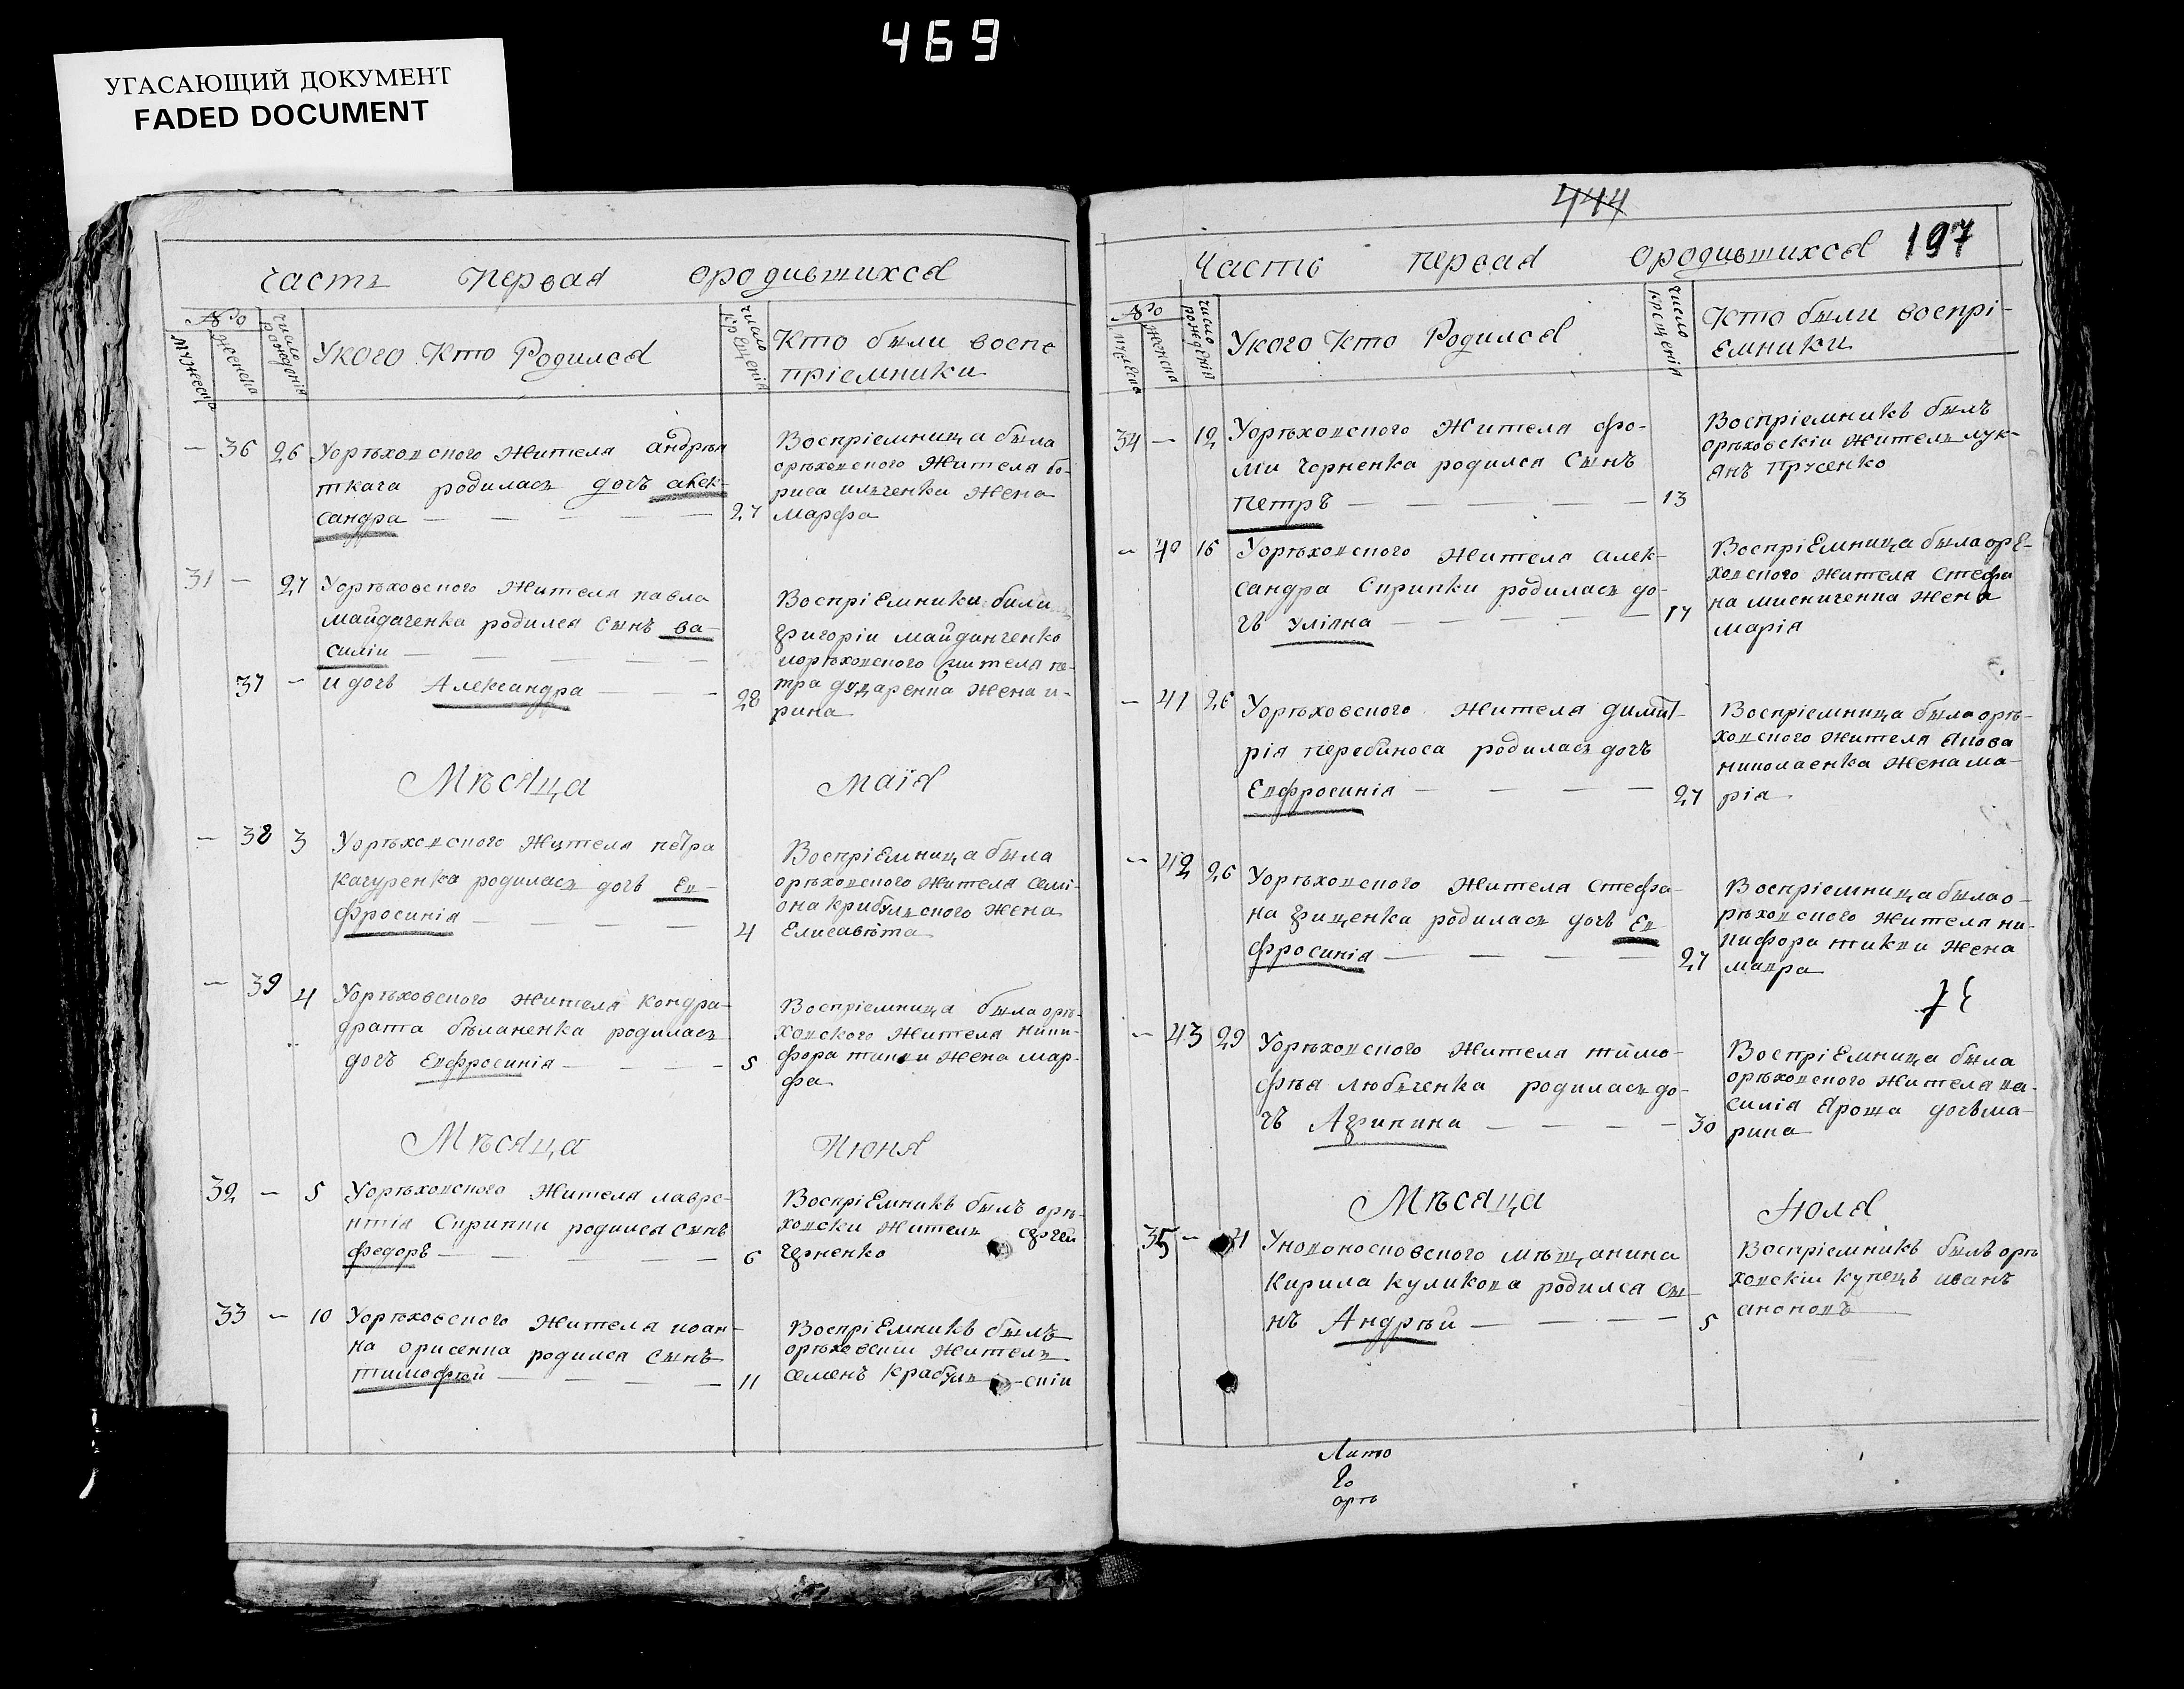 469
УГАСАЮЩИЙ ДОКУМЕНТ
FADED DOCUMENT
часть первая ородившихся
№
мужеска
женска
число рождения
Укого Кто Родился
число крещенія
Кто были воспе
пріемники
— 36 26 Уорѣховского жителя андрѣя
ткача родилась дочъ алек-
сандра 27
Воспріемница была
орѣховского жителя бо-
риса ильченка жена
марфа
31 — 27 Уорѣховского жителя павла
майдаченка родился сынъ ва-
силіи
37 — и дочъ Александра 28
Воспріемники были
григоріи майданченко
иорѣховского жителя пе-
тра дударенка жена и-
рина
Мѣсяца Маія
— 38 3 Уорѣховского жителя петра
качуренка родилась дочъ Ев-
фросинія 4
Воспріемница была
орѣховского жителя семі-
она крибульского жена
Елисавѣта
— 39 4 Уорѣховского жителя кондра-
фрата бѣланенка родилась
дочъ Евфросинія 5
Воспріемница была орѣ-
ховского жителя ники-
фора тикви жена мар-
фа
Мѣсяца Июня
32 — 5 Уорѣховского жителя лавре-
нтія Скрипки родился сынъ
федоръ 6
Воспріемникъ былъ орѣ-
ховски житель сергей
Черненко
33 — 10 Уорѣховского жителя иоан-
на орисенка родился сынъ
тимофѣй 11
Воспріемникъ былъ
орѣховскии житель
семенъ крабуль-скіи
444
197
Часть первая ородившихся
№
мужеска
женска
число рожденія
Укого Кто Родился
число крещенія
Кто были воспрі-
емники
34 — 12 Уорѣховского жителя фо-
ми Чорненка родился сынъ
петръ 13
Воспріемникъ былъ
орѣховскіи житель лук-
янъ прусенко
— 40 16 Уорѣховского жителя алек-
сандра Скрипки родилась до-
чъ уліяна 17
Воспріемница была орѣ-
ховского жителя стефа
на мисниченка жена
марія
— 41 26 Уорѣховского жителя димит-
рія перебиноса родилась дочъ
Евфросинія 27
Воспріемница была орѣ-
ховского жителя якова
николаенка жена ма-
рія
— 42 26 Уорѣховского жителя стефа-
на гриценка родилась дочъ Ев
фросинія 27
Воспріемница была о-
рѣховского жителя ни-
кифора тикви жена
мавра
— 43 29 Уорѣховского жителя тимо-
фѣя любченка родилась до-
чъ Агрипина 30
Воспріемница была
орѣховского жителя ва-
силія яроша дочъ ма-
рина
Мѣсяца Июля
35 — Уновоносковского мѣщанина
Кирила куликова родился сы-
нъ Андрѣй 5
Воспріемникъ былъ орѣ
ховскіи купецъ иванъ
аноновъ
орѣ